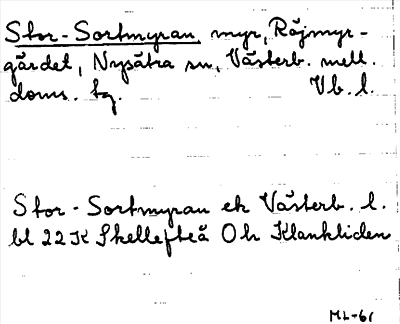 Stor-Sortmyran, myr, Röjmyr-
gärdet, Nysätra sn, Västerb. mell.
doms. tg. Vb. l.
Stor-Sortmyran ek Västerb. l.
bl 22 K Skellefteå Oh Klankliden
ML-61